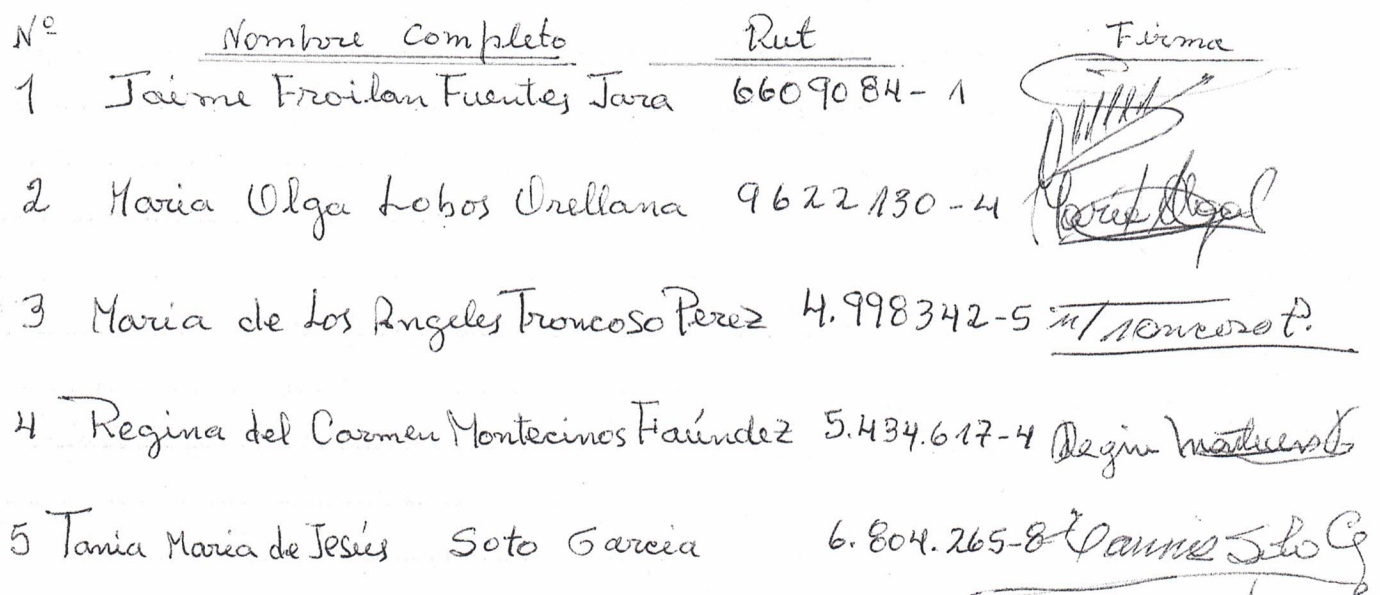 Nº Nombre Completo Rut Firma
1 Jaime Froilan Fuentes Jara 6609084-1
2 Maria Olga Lobos Orellana 9622130-4 Maria Olga L
3 Maria de Los Angeles Troncoso Perez 4.998342-5 M Troncoso P.
4 Regina del Carmen Montecinos Faúndez 5.434.617-4 Regin
5 Tania Maria de Jesús Soto Garcia 6.804.265-8 Soto G